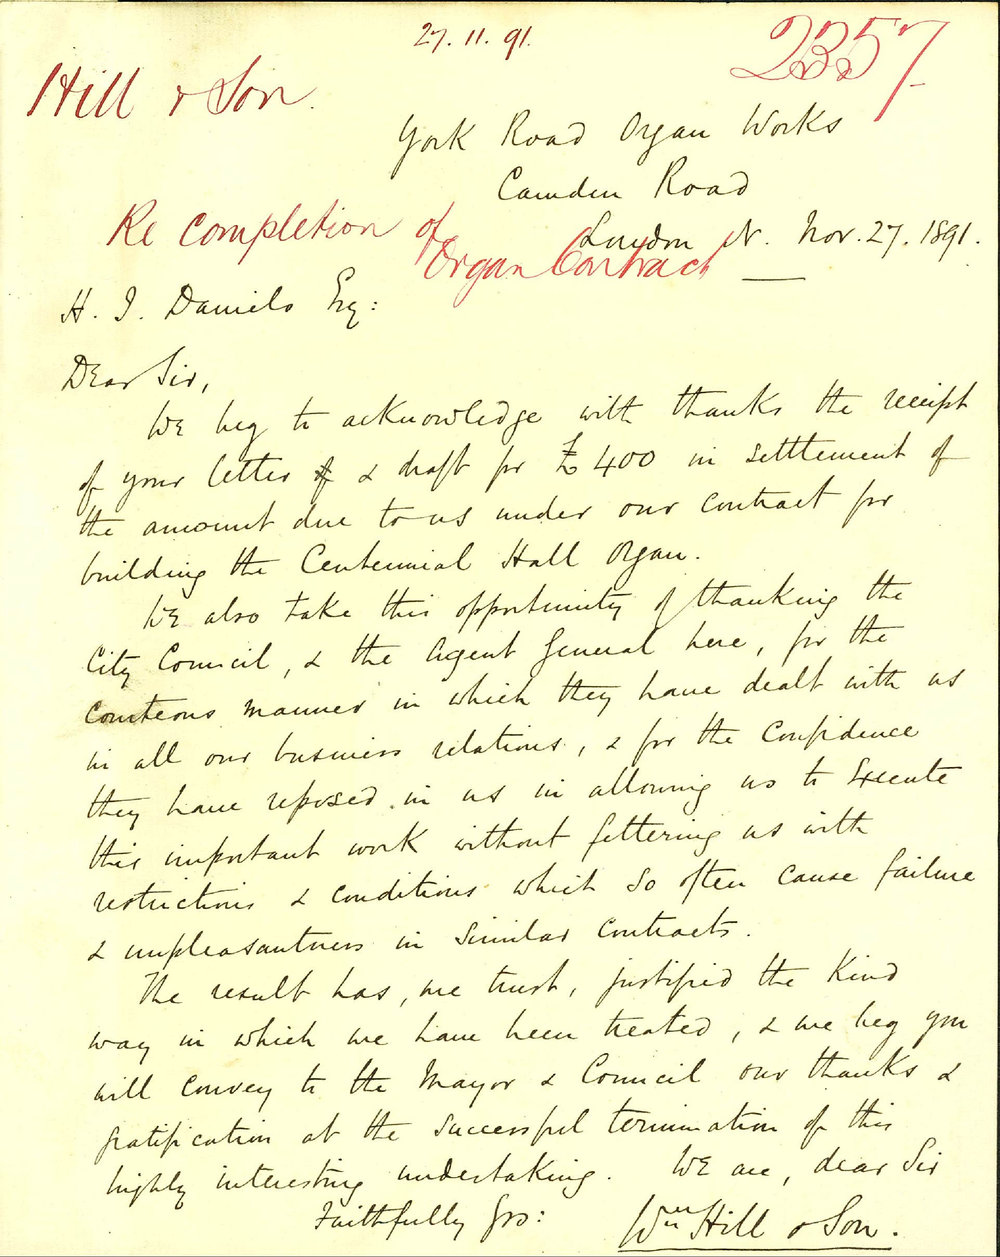 27.11.91.
2357
Hill & Son.
York Road Organ Works
Camden Road
London N. Nov. 27. 1891.
Re completion of
Organ Contract
H. J. Daniels Esq:
Dear Sir,
We beg to acknowledge with thanks the receipt
of your letter & draft for £400 in settlement of
the amount due to us under our contract for
building the Centennial Hall Organ.
We also take this opportunity of thanking the
City Council, & the Agent General here, for the
courteous manner in which they have dealt with us
in all our business relations, & for the confidence
they have reposed in us in allowing us to execute
this important work without fettering us with
restrictions & conditions which so often cause failure
& unpleasantness in similar contracts.
The result has, we trust, justified the kind
way in which we have been treated, & we beg you
will convey to the Mayor & Council our thanks &
gratification at the successful termination of this
highly interesting undertaking. We are, dear Sir
Faithfully Yrs:
Wm Hill & Son.